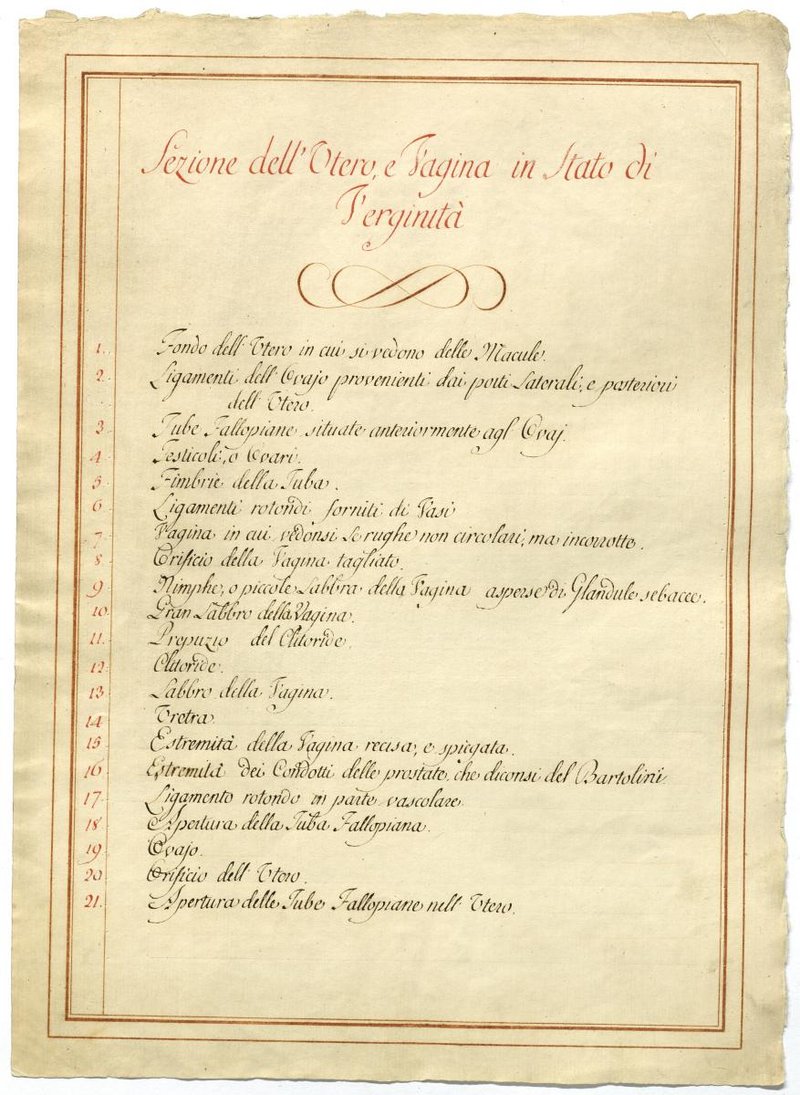 Sezione dell' Utero, e Vagina in Stato di
Verginità
1. Fondo dell' Utero in cui si vedono delle Macule.
2. Ligamenti dell' Ovajo provenienti dai posti Laterali, e posteriori
dell' Utero.
3 Tube Fallopiane situate anteriormente agl' Ovaj.
4 Testicoli, o Ovari.
5 Fimbrie della Tuba.
6 Ligamenti rotondi forniti di Vasi
7. Vagina in cui vedonsi le rughe non circolari, ma incorrotte.
8 Orificio della Vagina tagliato.
9 Nimphe, o piccole Labbra della Vagina asperse di Glandule sebacee.
10. Gran Labbro della Vagina.
11. Prepuzio del Clitoride.
12. Clitoride.
13 Labbro della Vagina.
14 Uretra
15 Estremità della Vagina recisa, e spiegata.
16 Estremità dei Condotti delle prostate, che diconsi del Bartolini
17. Ligamento rotondo in parte vascolare
18 Apertura della Tuba Fallopiana.
19 Ovajo.
20 Orificio dell' Utero.
21. Apertura delle Tube Fallopiane nell' Utero.